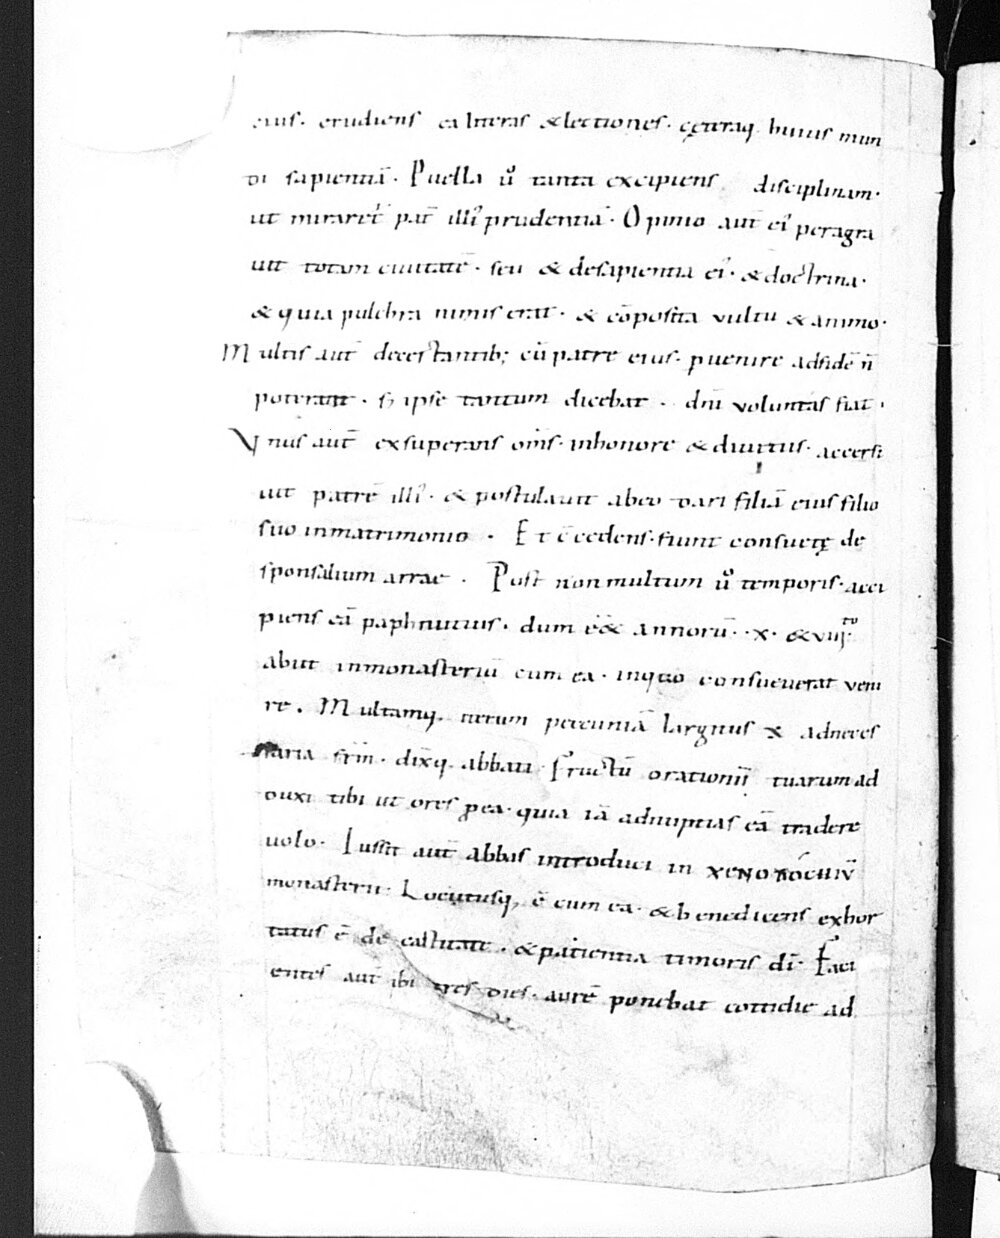 eius. erudiens ea litteras &lectiones. cęteraq. huius mun
di sapientiā. Puella ū tanta excipiens disciplinam.
ut mirare͛t pat̄ illi' prudentiā. Opinio aut̄ ei' peragra
uit totam ciuitatē. seu & desapientia ei'. & doctrina.
& quia pulchra nimis erat. & cōposita vultu & animo.
Multis aut̄ decertantib; cū patre eius. puenire adfidē n̄
poterant. s; ipse tantum dicebat. dn̄i voluntas fiat.
Vnus aut̄ exsuperans om̄s. inhonore & diuitiis. accersi
uit patrē illi'. & postulauit abeo dari filiā eius filio
suo inmatrimonio. Et c̄cedens. fiunt consuetę de
sponsalium arrae. Post non multum ū temporis. acci
piens eā paphnutius. dum ēē& annorū. x. & viii.
abiit inmonasteriū cum ea. inquo consueuerat veni
re. Multamq. iterum pecuniā largitus x adneces
saria frm̄. dixq. abbati. Fructū orationū tuarum ad
duxi tibi ut ores p ea. quia iā adnuptias eā tradere
uolo. Iussit aut̄ abbas introduci in xenodochiū
monasterii. Locutusq, ē cum ea. & benedicens exhor
tatus ē de castitate. & patientia timoris dī. Faci
entes aut̄ ibi tres dies. aurē ponebat cottidie ad